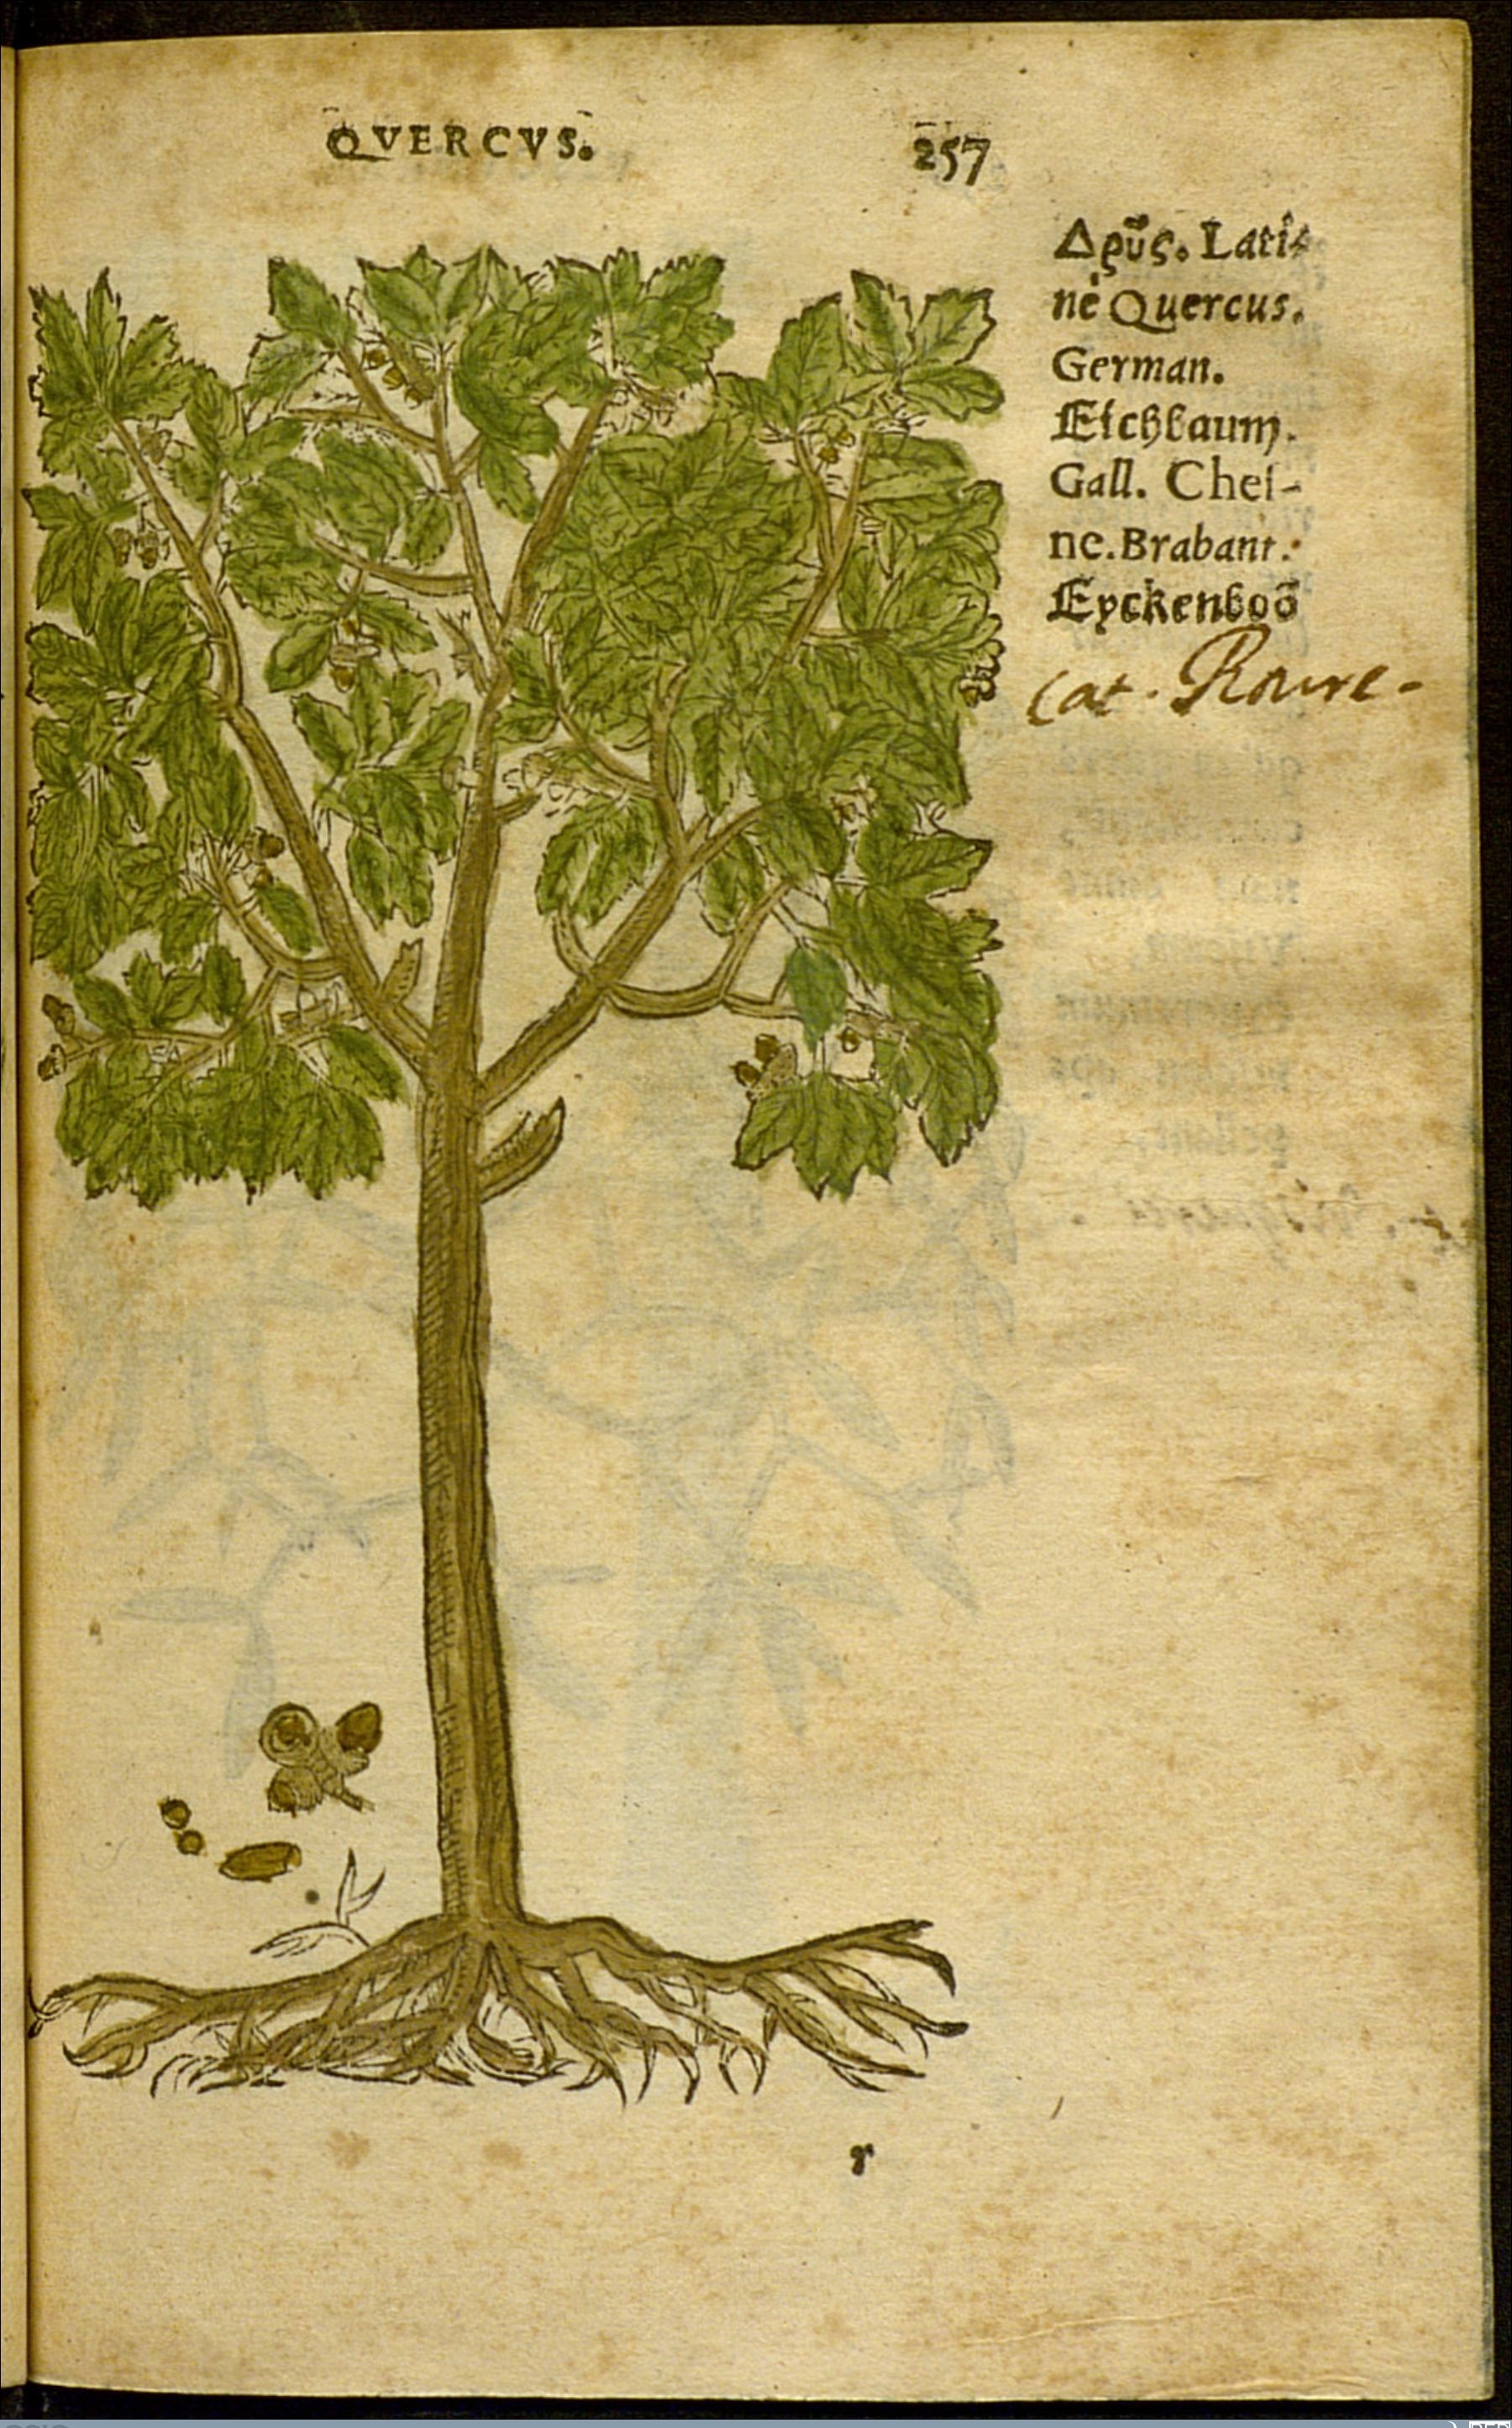 QVERCVS. 257
Δρῦς. Lati-
nè Quercus.
German.
Eichbaum.
Gall. Chei-
ne. Brabant.
Eyckenboō
Cat. Roure.
r